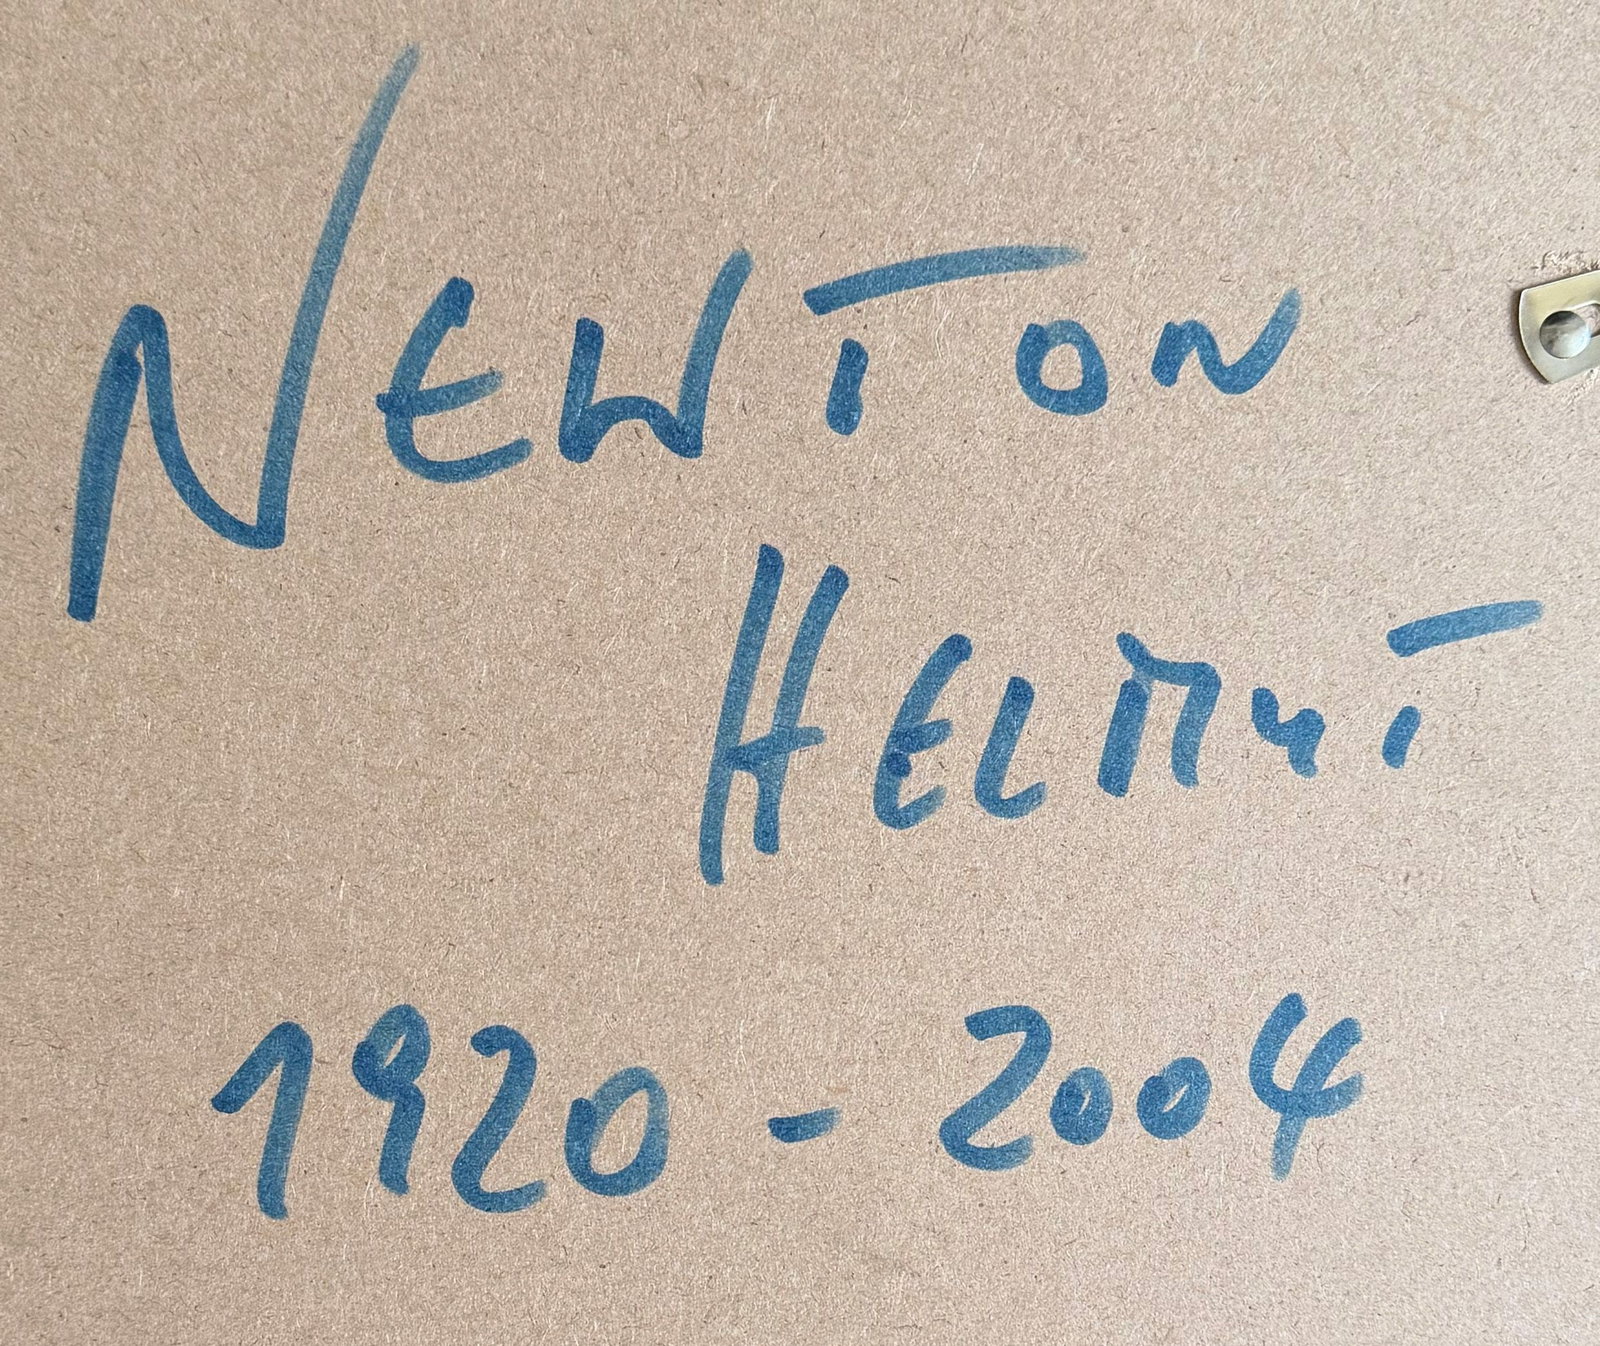 NEWTON
HELMUT
1920 - 2004